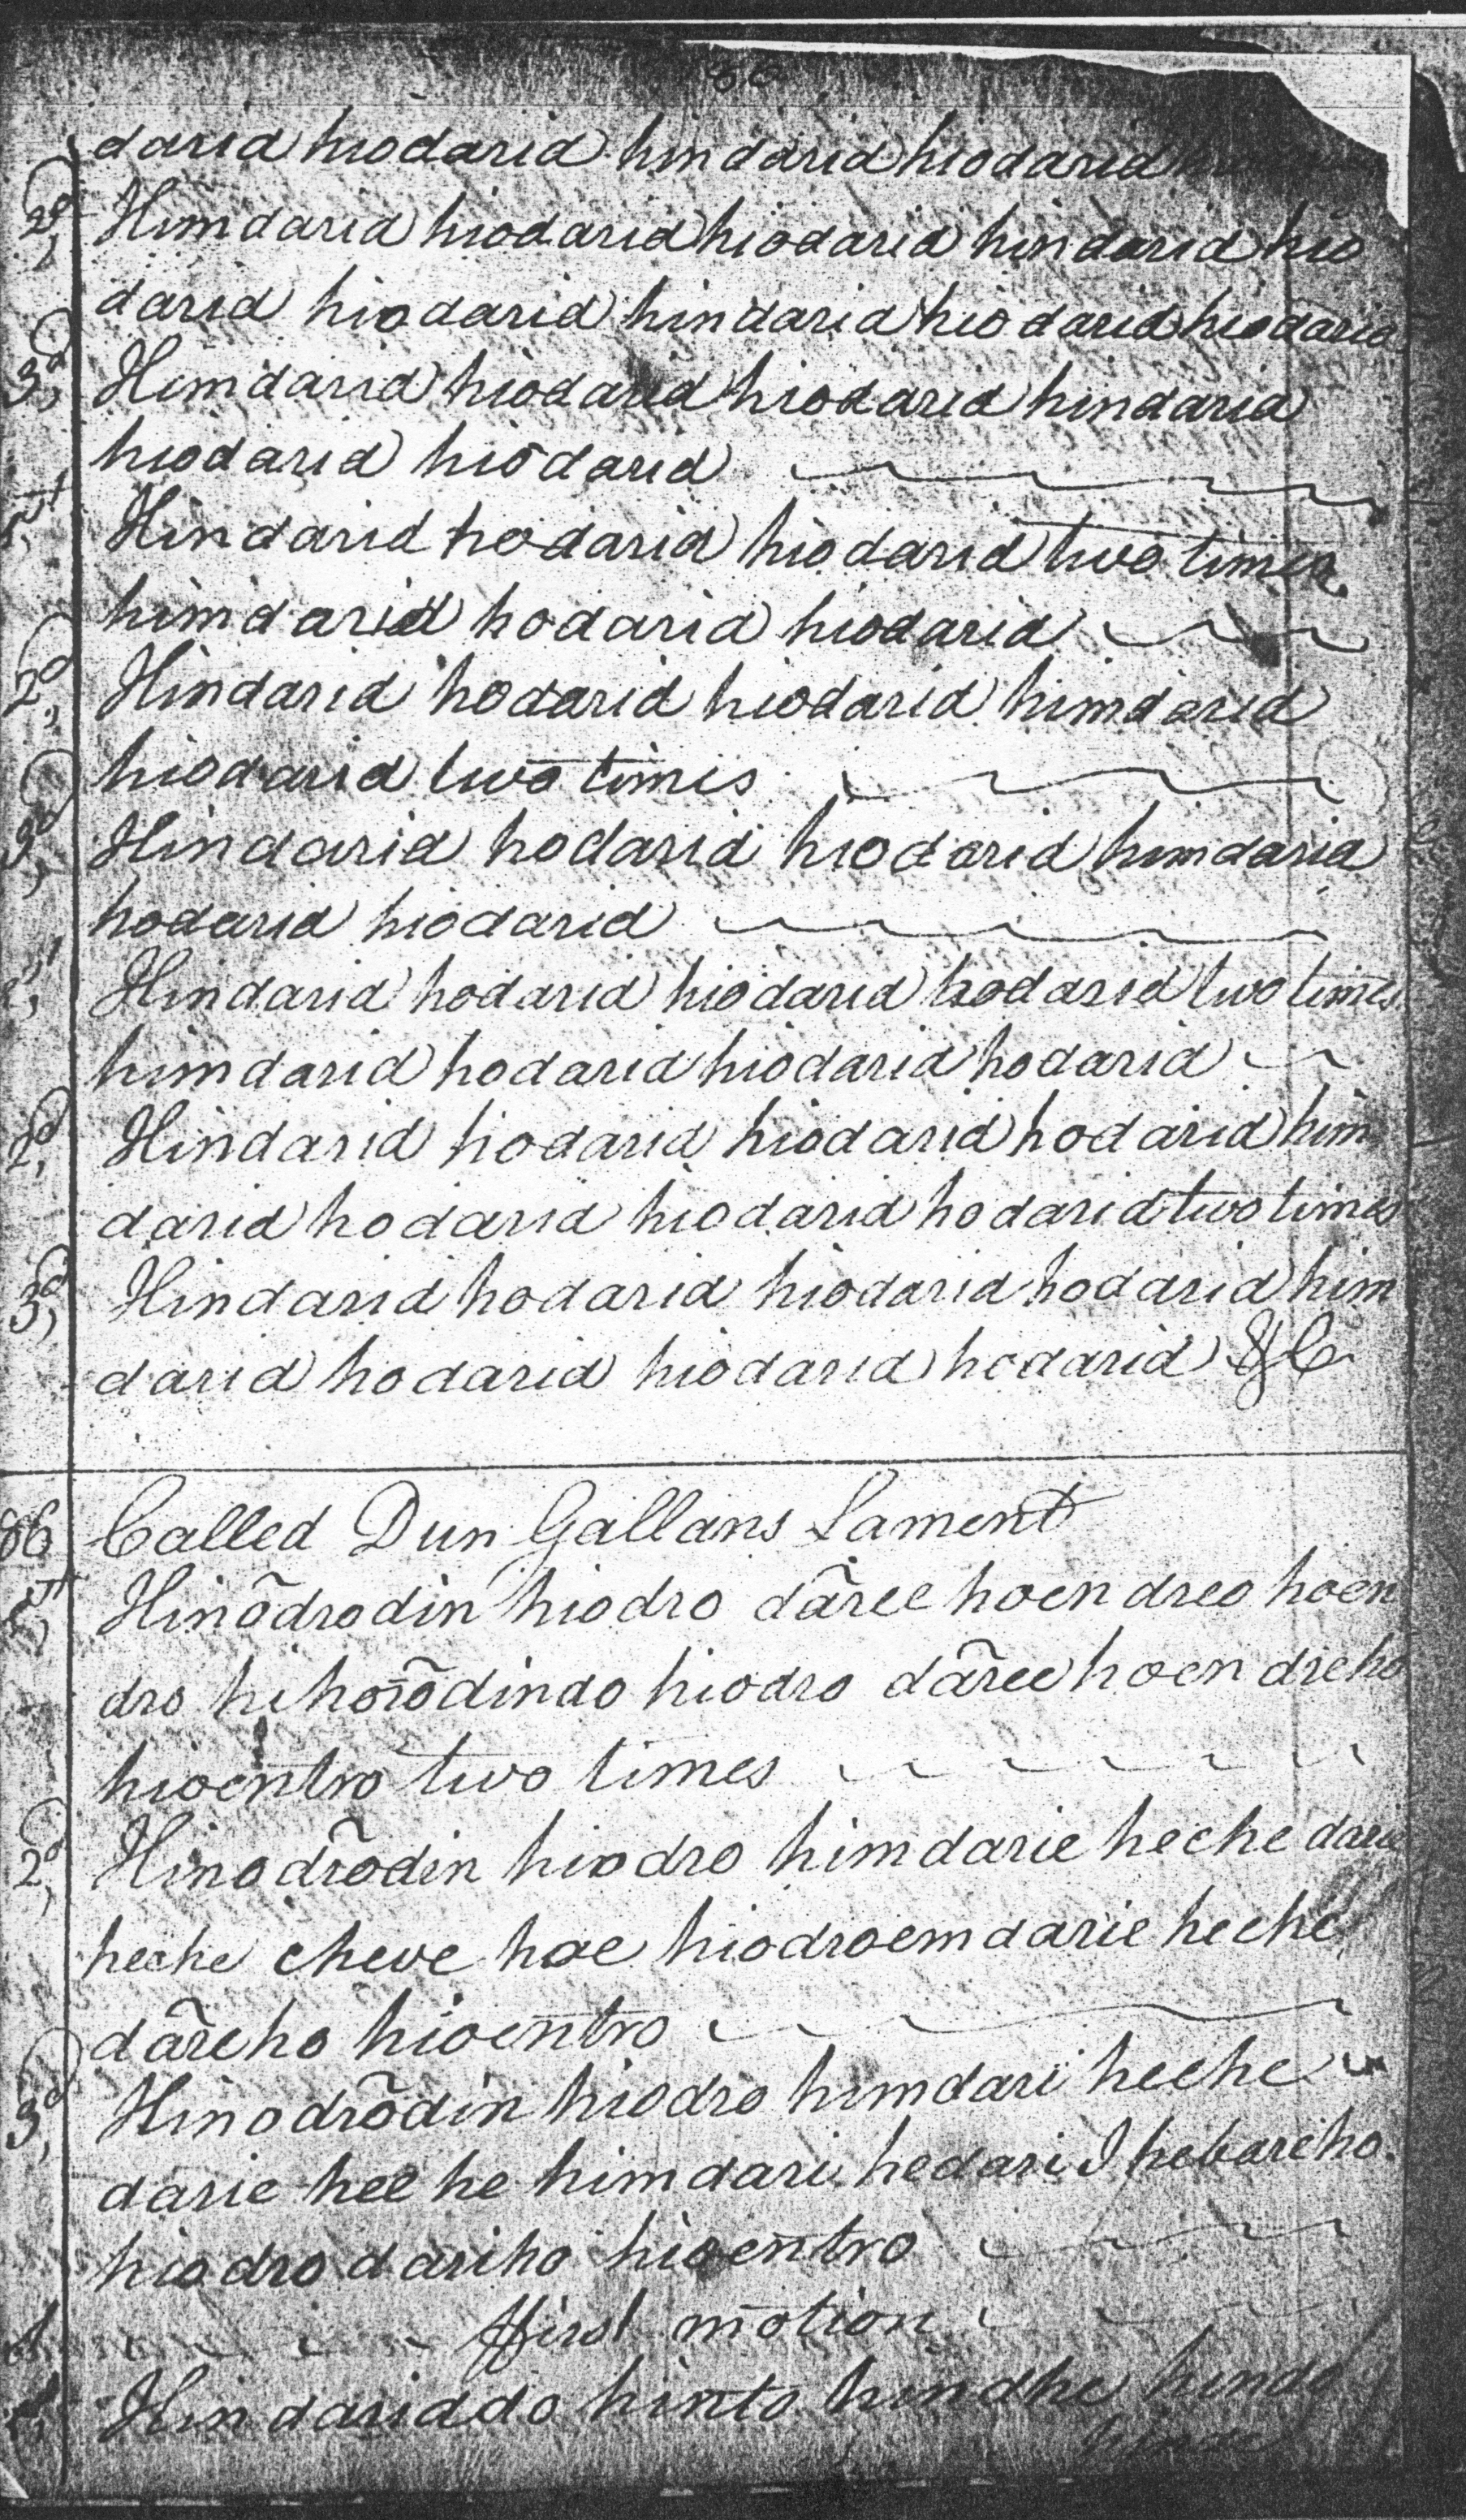 darid hiodarid hindarid hiodarid
2d, Himdarid hiodarid hiodarid hindarid hio
darid hiodarid hindarid hiodarid hiodarid
3d, Himdarid hiodarid hiodarid hindarid
hiodarid hiodarid
1st, Hindarid hodarid hiodarid two times
himdarid hodarid hiodarid
2d, Hindarid hodarid hiodarid himdarid
hiodarid two times
3d, Hindarid hodarid hiodarid himdarid
hodarid hiodarid
1st, Hindarid hodarid hiodarid hodarid two times
himdarid hodarid hiodarid hodarid
2d, Hindarid hodarid hiodarid hodarid him
darid hodarid hiodarid hodarid two times
3d, Hindarid hodarid hiodarid hodarid him
darid hodarid hiodarid hodarid &C
86 Called Dun Gallans Lament
1st, Hinõdrodin hiodro dãree hoen dreo hoen
dro hihorõdindo hiodro dãree hoen dreho
hioentro two times
2d, Hinodrõdin hiodro himdarie heche darie
heche cheve hoe hiodroem darie heche
dãreho hioentro
3d, Hinodrõdin hiodro himdari heche
darie hee he himdari hedari I hebareho
hiodro dariho hioentro
ffirst motion
Hindariddo hinto hindhe hindo